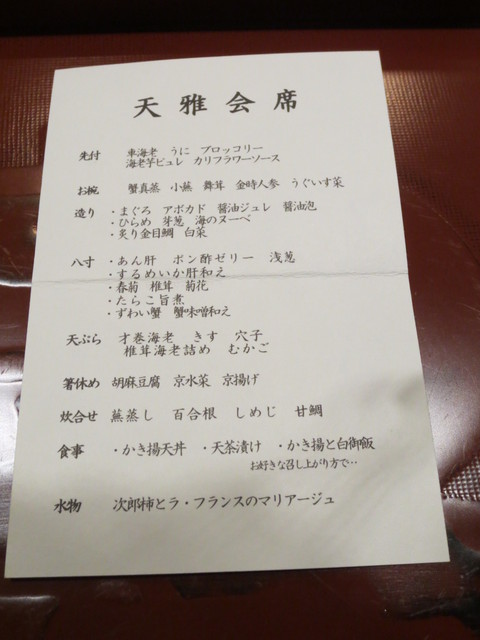 天雅会席
先付 車海老 うに ブロッコリー
海老芋ピュレ カリフラワーソース
お椀 蟹真蒸 小蕪 舞茸 金時人参 うぐいす菜
造り ・まぐろ アボカド 醤油ジュレ 醤油泡
・ひらめ 芽葱 海のヌーベ
・炙り金目鯛 白菜
八寸 ・あん肝 ポン酢ゼリー 浅葱
・するめいか肝和え
・春菊 椎茸 菊花
・たらこ旨煮
・ずわい蟹 蟹味噌和え
天ぷら 才巻海老 きす 穴子
椎茸海老詰め むかご
箸休め 胡麻豆腐 京水菜 京揚げ
炊合せ 蕪蒸し 百合根 しめじ 甘鯛
食事 ・かき揚天丼 ・天茶漬け ・かき揚と白御飯
お好きな召し上がり方で‥
水物 次郎柿とラ・フランスのマリアージュ